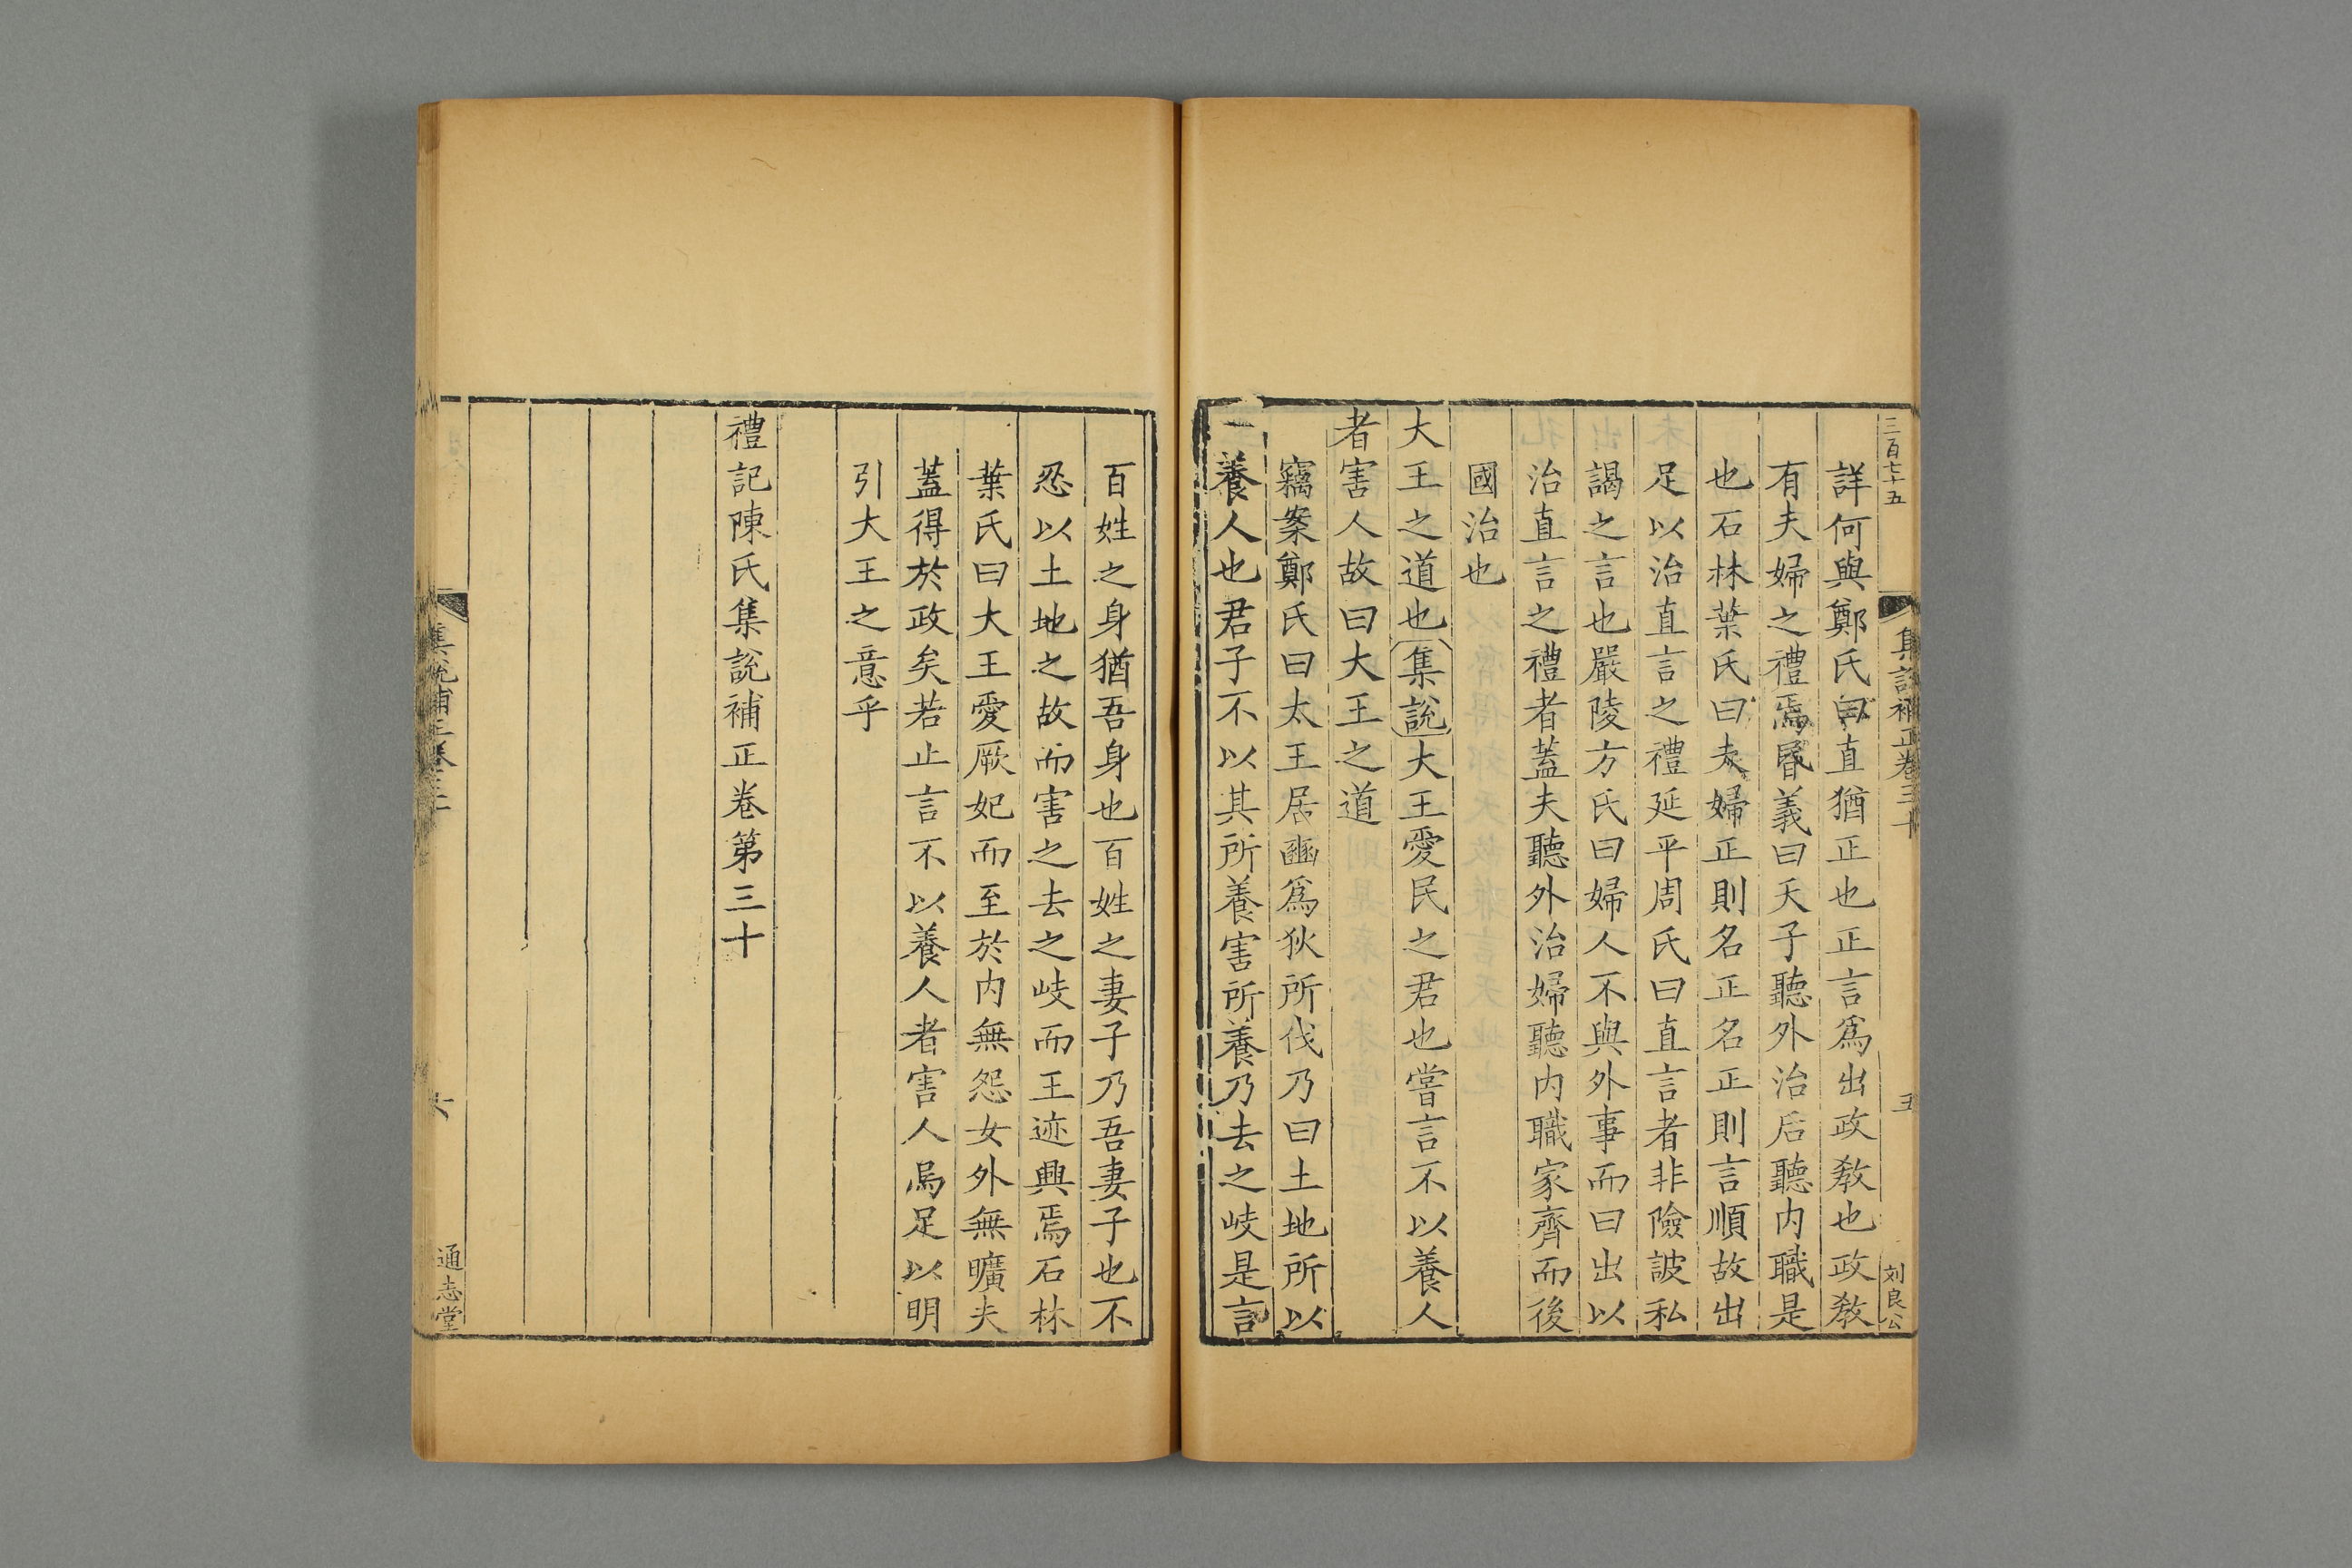 三百七十五
集說補正卷三十
五
刘良公
詳何與鄭氏曰直猶正也正言爲出政敎也政敎
有夫婦之禮焉昬義曰天子聽外治后聽内職是
也石林葉氏曰夫婦正則名正名正則言順故出
足以治直言之禮延平周氏曰直言者非險詖私
謁之言也嚴陵方氏曰婦人不與外事而曰出以
治直言之禮者蓋夫聽外治婦聽内職家齊而後
國治也
大王之道也集說大王愛民之君也嘗言不以養人
者害人故曰大王之道
竊案鄭氏曰太王居豳爲狄所伐乃曰土地所以
養人也君子不以其所養害所養乃去之岐是言
百姓之身猶吾身也百姓之妻子乃吾妻子也不
忍以土地之故而害之去之岐而王迹興焉石林
葉氏曰大王愛厥妃而至於内無怨女外無曠夫
蓋得於政矣若止言不以養人者害人烏足以明
引大王之意乎
禮記陳氏集說補正卷第三十
集說補正卷三十
六
通志堂